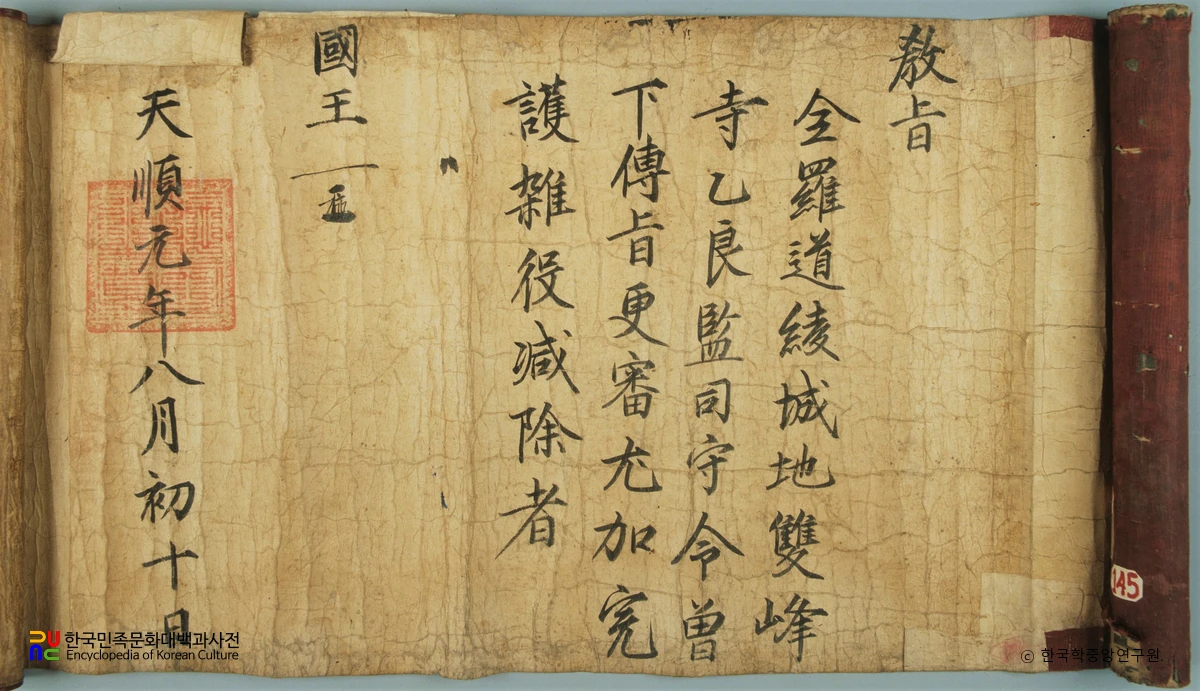 教旨
全羅道綾城地雙峰
寺乙良監司守令曾
下傳旨更審尤加完
護雜役減除者
國王
天順元年八月初十日
145
한국민족문화대백과사전
Encyclopedia of Korean Culture
ⓒ 한국학중앙연구원.